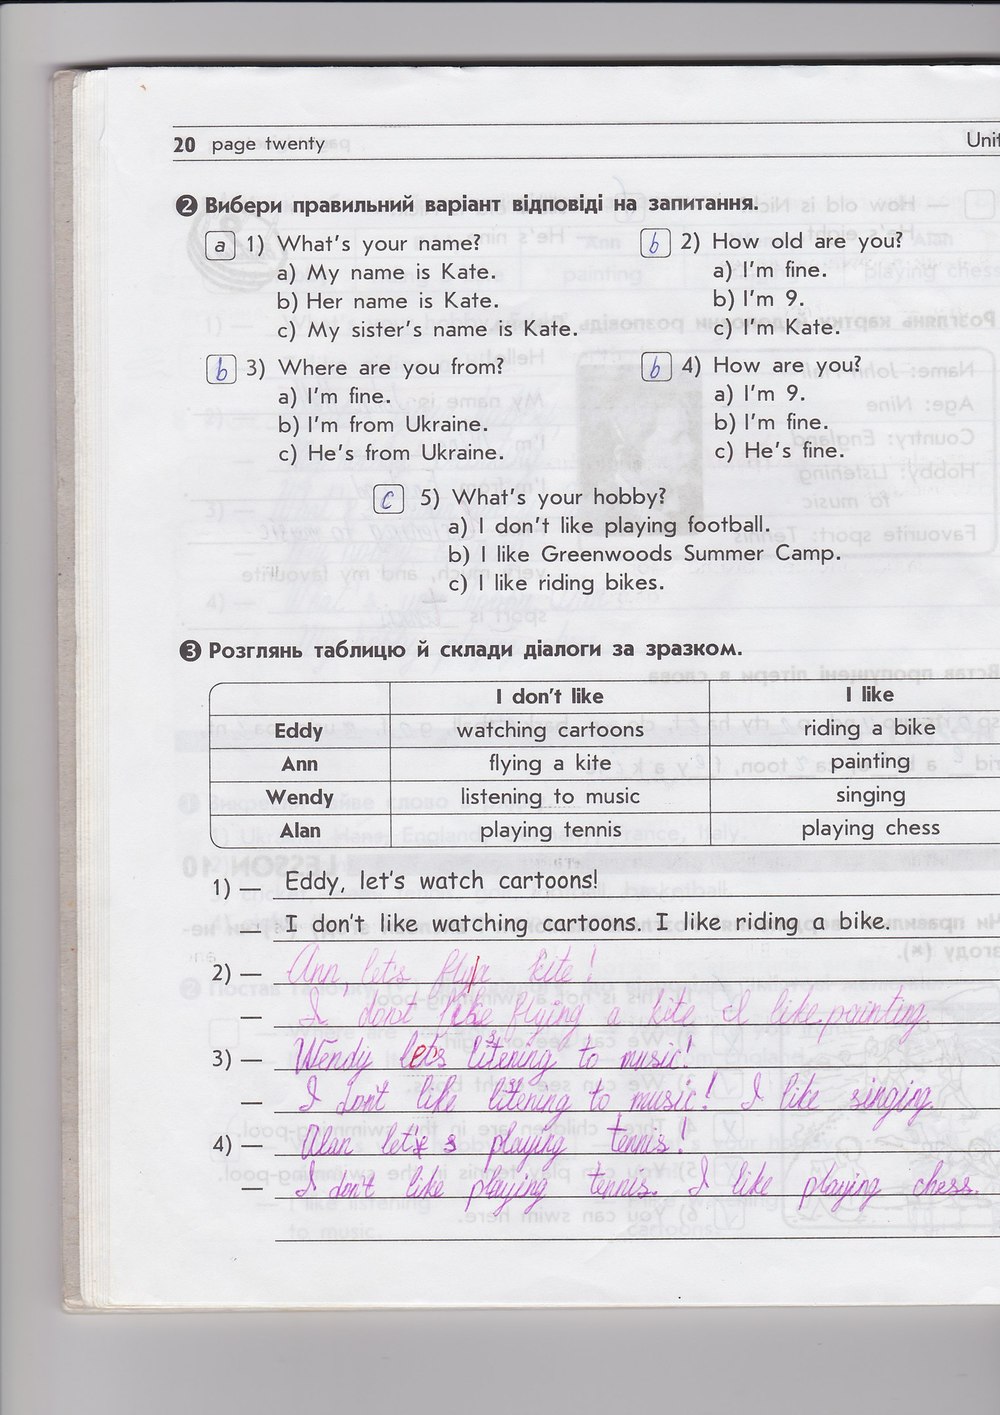 20 page twenty
Unit
2 Вибери правильний варіант відповіді на запитання.
a 1) What's your name?
a) My name is Kate.
b) Her name is Kate.
c) My sister's name is Kate.
b 2) How old are you?
a) I'm fine.
b) I'm 9.
c) I'm Kate.
b 3) Where are you from?
a) I'm fine.
b) I'm from Ukraine.
c) He's from Ukraine.
b 4) How are you?
a) I'm 9.
b) I'm fine.
c) He's fine.
c 5) What's your hobby?
a) I don't like playing football.
b) I like Greenwoods Summer Camp.
c) I like riding bikes.
3 Розглянь таблицю й склади діалоги за зразком.
I don't like I like
Eddy watching cartoons riding a bike
Ann flying a kite painting
Wendy listening to music singing
Alan playing tennis playing chess
1) — Eddy, let's watch cartoons!
— I don't like watching cartoons. I like riding a bike.
2) — Ann, let's kite!
— I don't like flying a kite I like painting.
3) — Wendy let's listening to music!
— I don't like listening to music! I like singing.
4) — Alan let's playing tennis!
— I don't like playing tennis. I like playing chess.